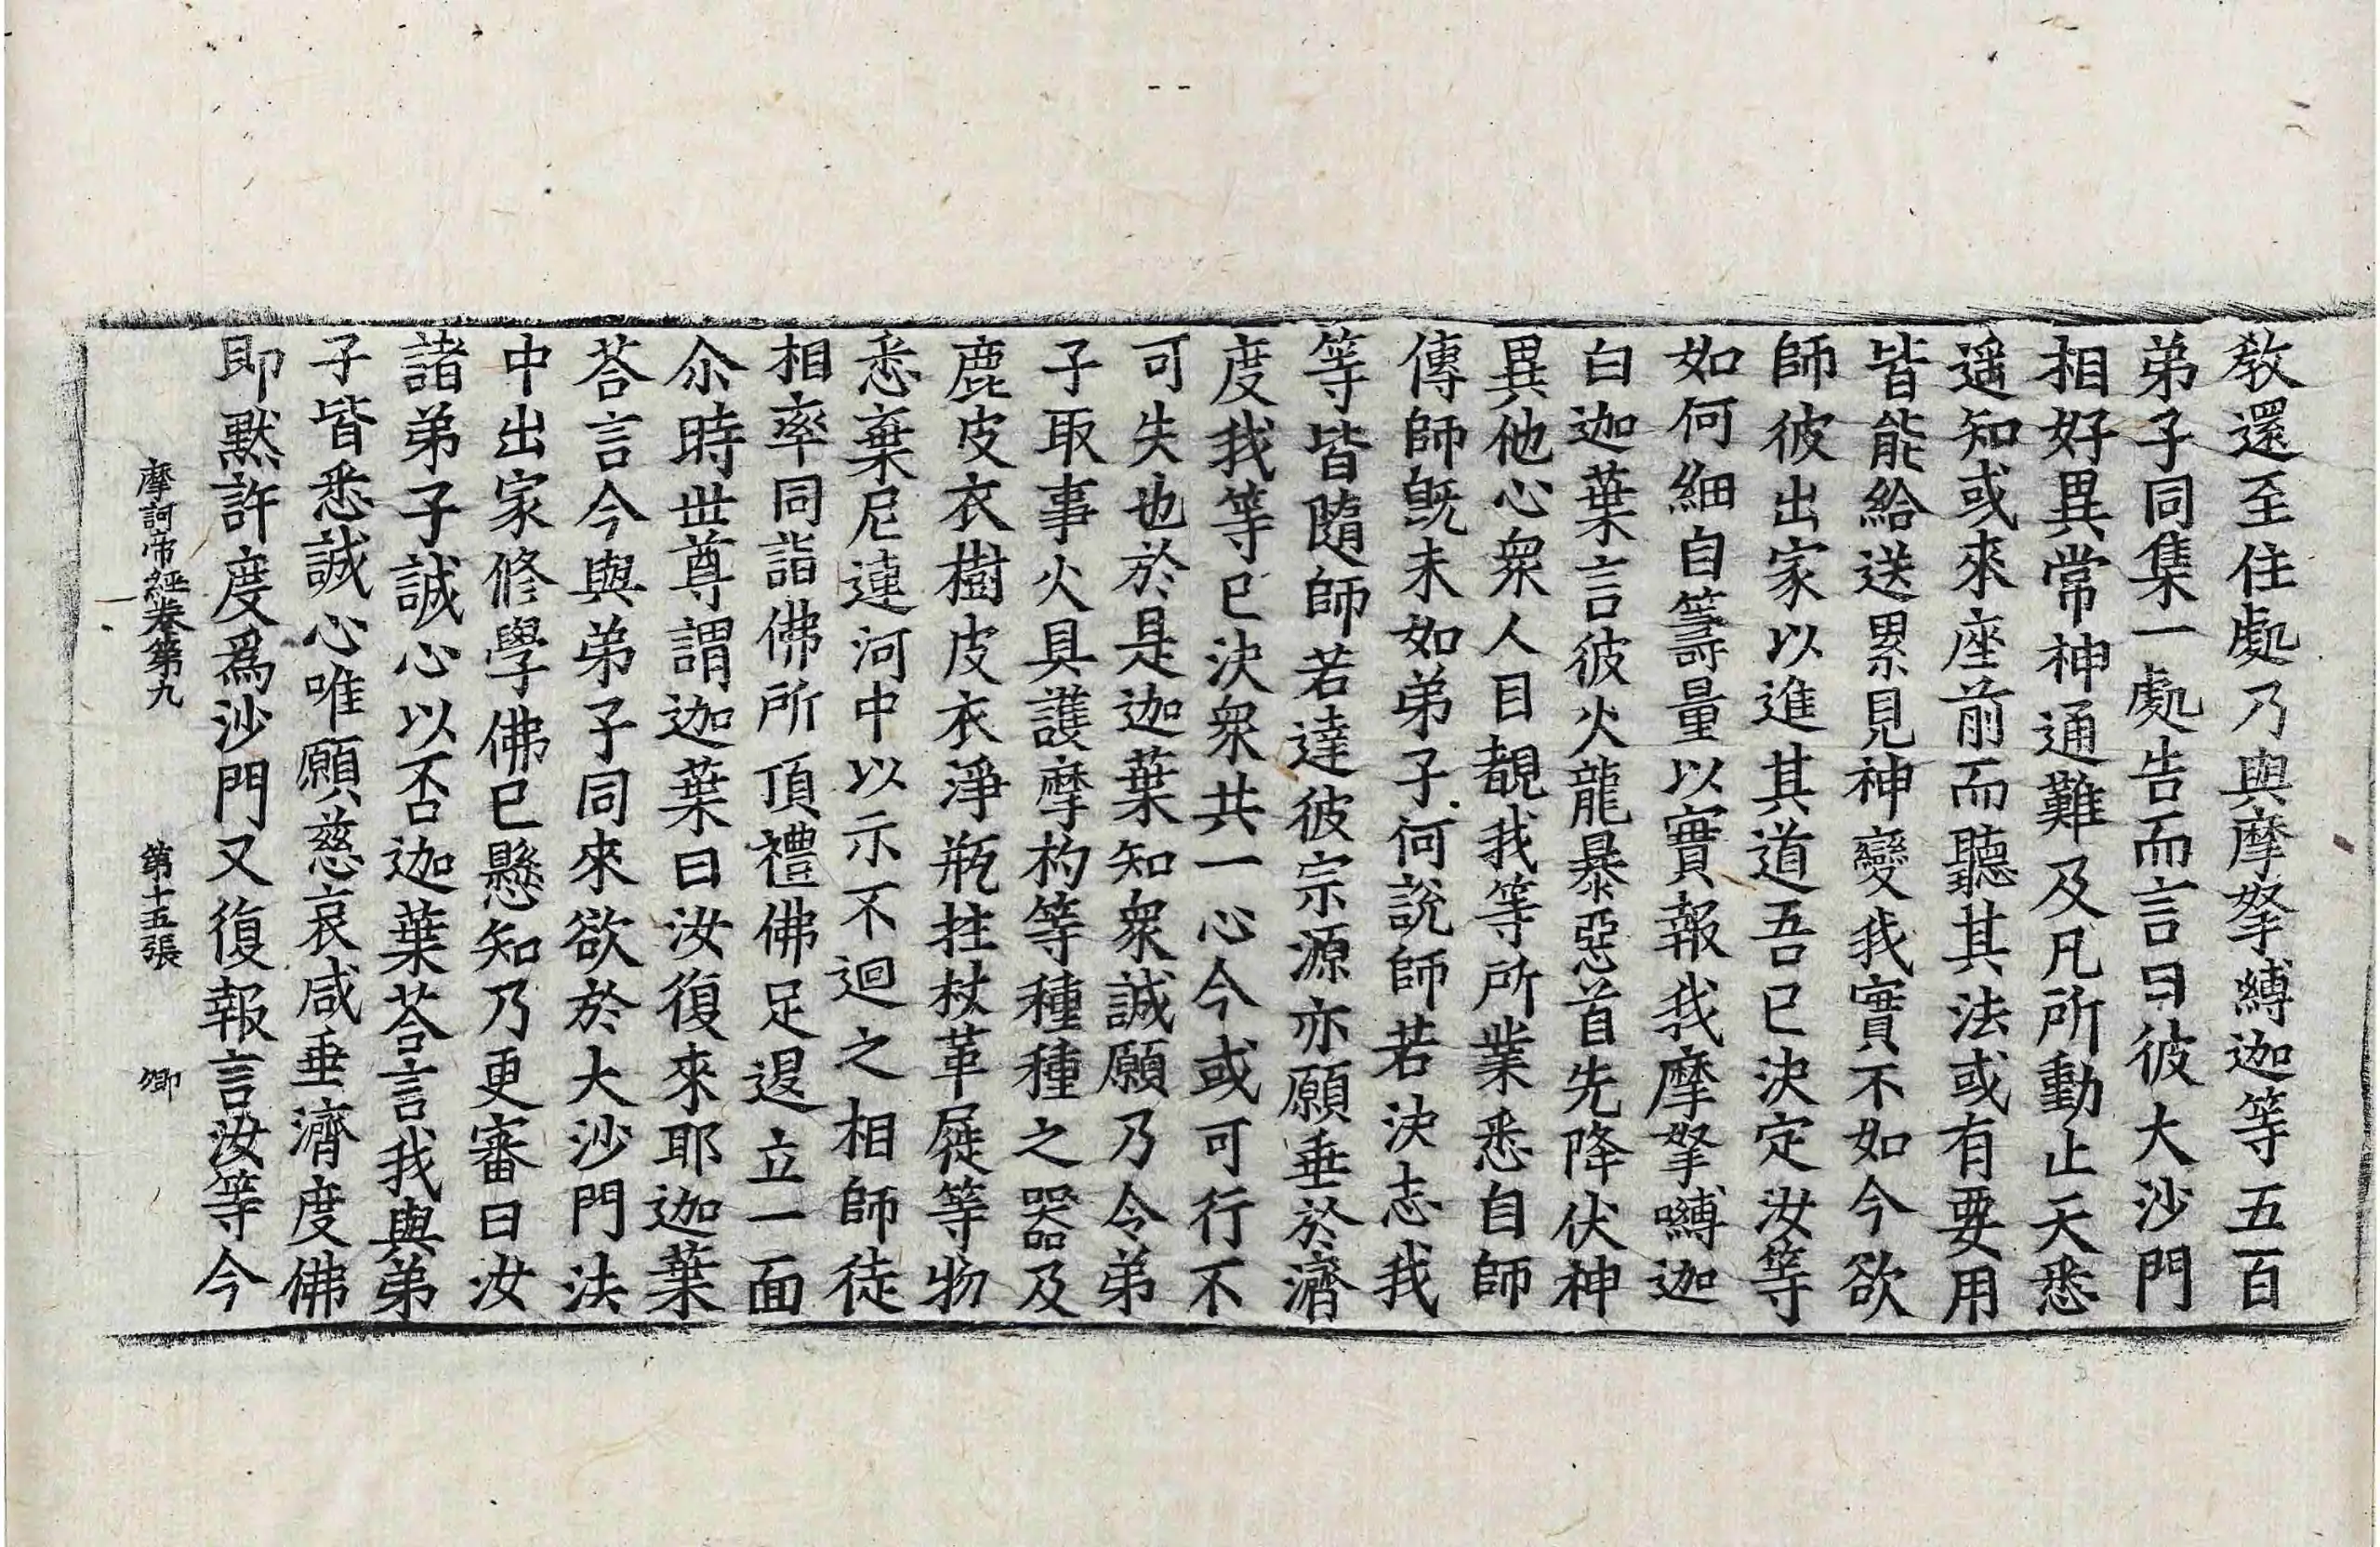 教還至住處乃與摩拏縛迦等五百
弟子同集一處告而言曰彼大沙門
相好異常神通難及凡所動止天悉
遥知或來座前而聽其法或有要用
皆能給送累見神變我實不如今欲
師彼出家以進其道吾已決定汝等
如何細自籌量以實報我摩拏嚩迦
白迦葉言彼火龍暴惡首先降伏神
異他心衆人目覩我等所業悉自師
傳師旣未如弟子何說師若決志我
等皆隨師若達彼宗源亦願垂於濟
度我等已決衆共一心今或可行不
可失也於是迦葉知衆誠願乃令弟
子取事火具護摩杓等種種之器及
鹿皮衣樹皮衣淨瓶拄杖革屣等物
悉棄尼連河中以示不迴之相師徒
相率同詣佛所頂禮佛足退立一面
尒時世尊謂迦葉曰汝復來耶迦葉
荅言今與弟子同來欲於大沙門法
中出家修學佛已懸知乃更審曰汝
諸弟子誠心以否迦葉荅言我與弟
子皆悉誠心唯願慈哀咸垂濟度佛
即黙許度爲沙門又復報言汝等今
摩訶帝經卷第九 第十五張 卿